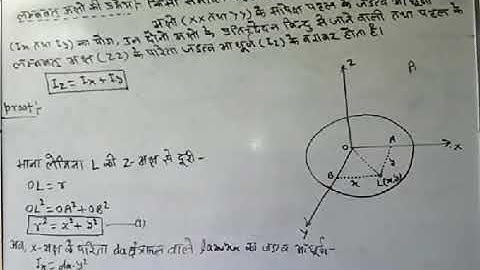 लम्बवत् अक्षों की प्रमेय:- किसी समतल
अक्षों (XX तथा YY) के सापेक्ष पटल के जड़त्व आघूर्ण
(Ix तथा Iy) का योग, इन दोनों अक्षों के प्रतिच्छेदन बिन्दु से जाने वाली तथा पटल के
लम्बवत् अक्ष (ZZ) के परितः जड़त्व आघूर्ण (Iz) के बराबर होता है।
Iz = Ix + Iy
A
Proof:-
Z
O
A
X
y
B
x
L(x,y)
Y
माना लेमिना L की Z-अक्ष से दूरी-
OL = r
OL² = OA² + OB²
r² = x² + y² —(1)
अब, x-अक्ष के परितः da क्षेत्रफल वाले lamina का जड़त्व आघूर्ण-
Ix = da·y²